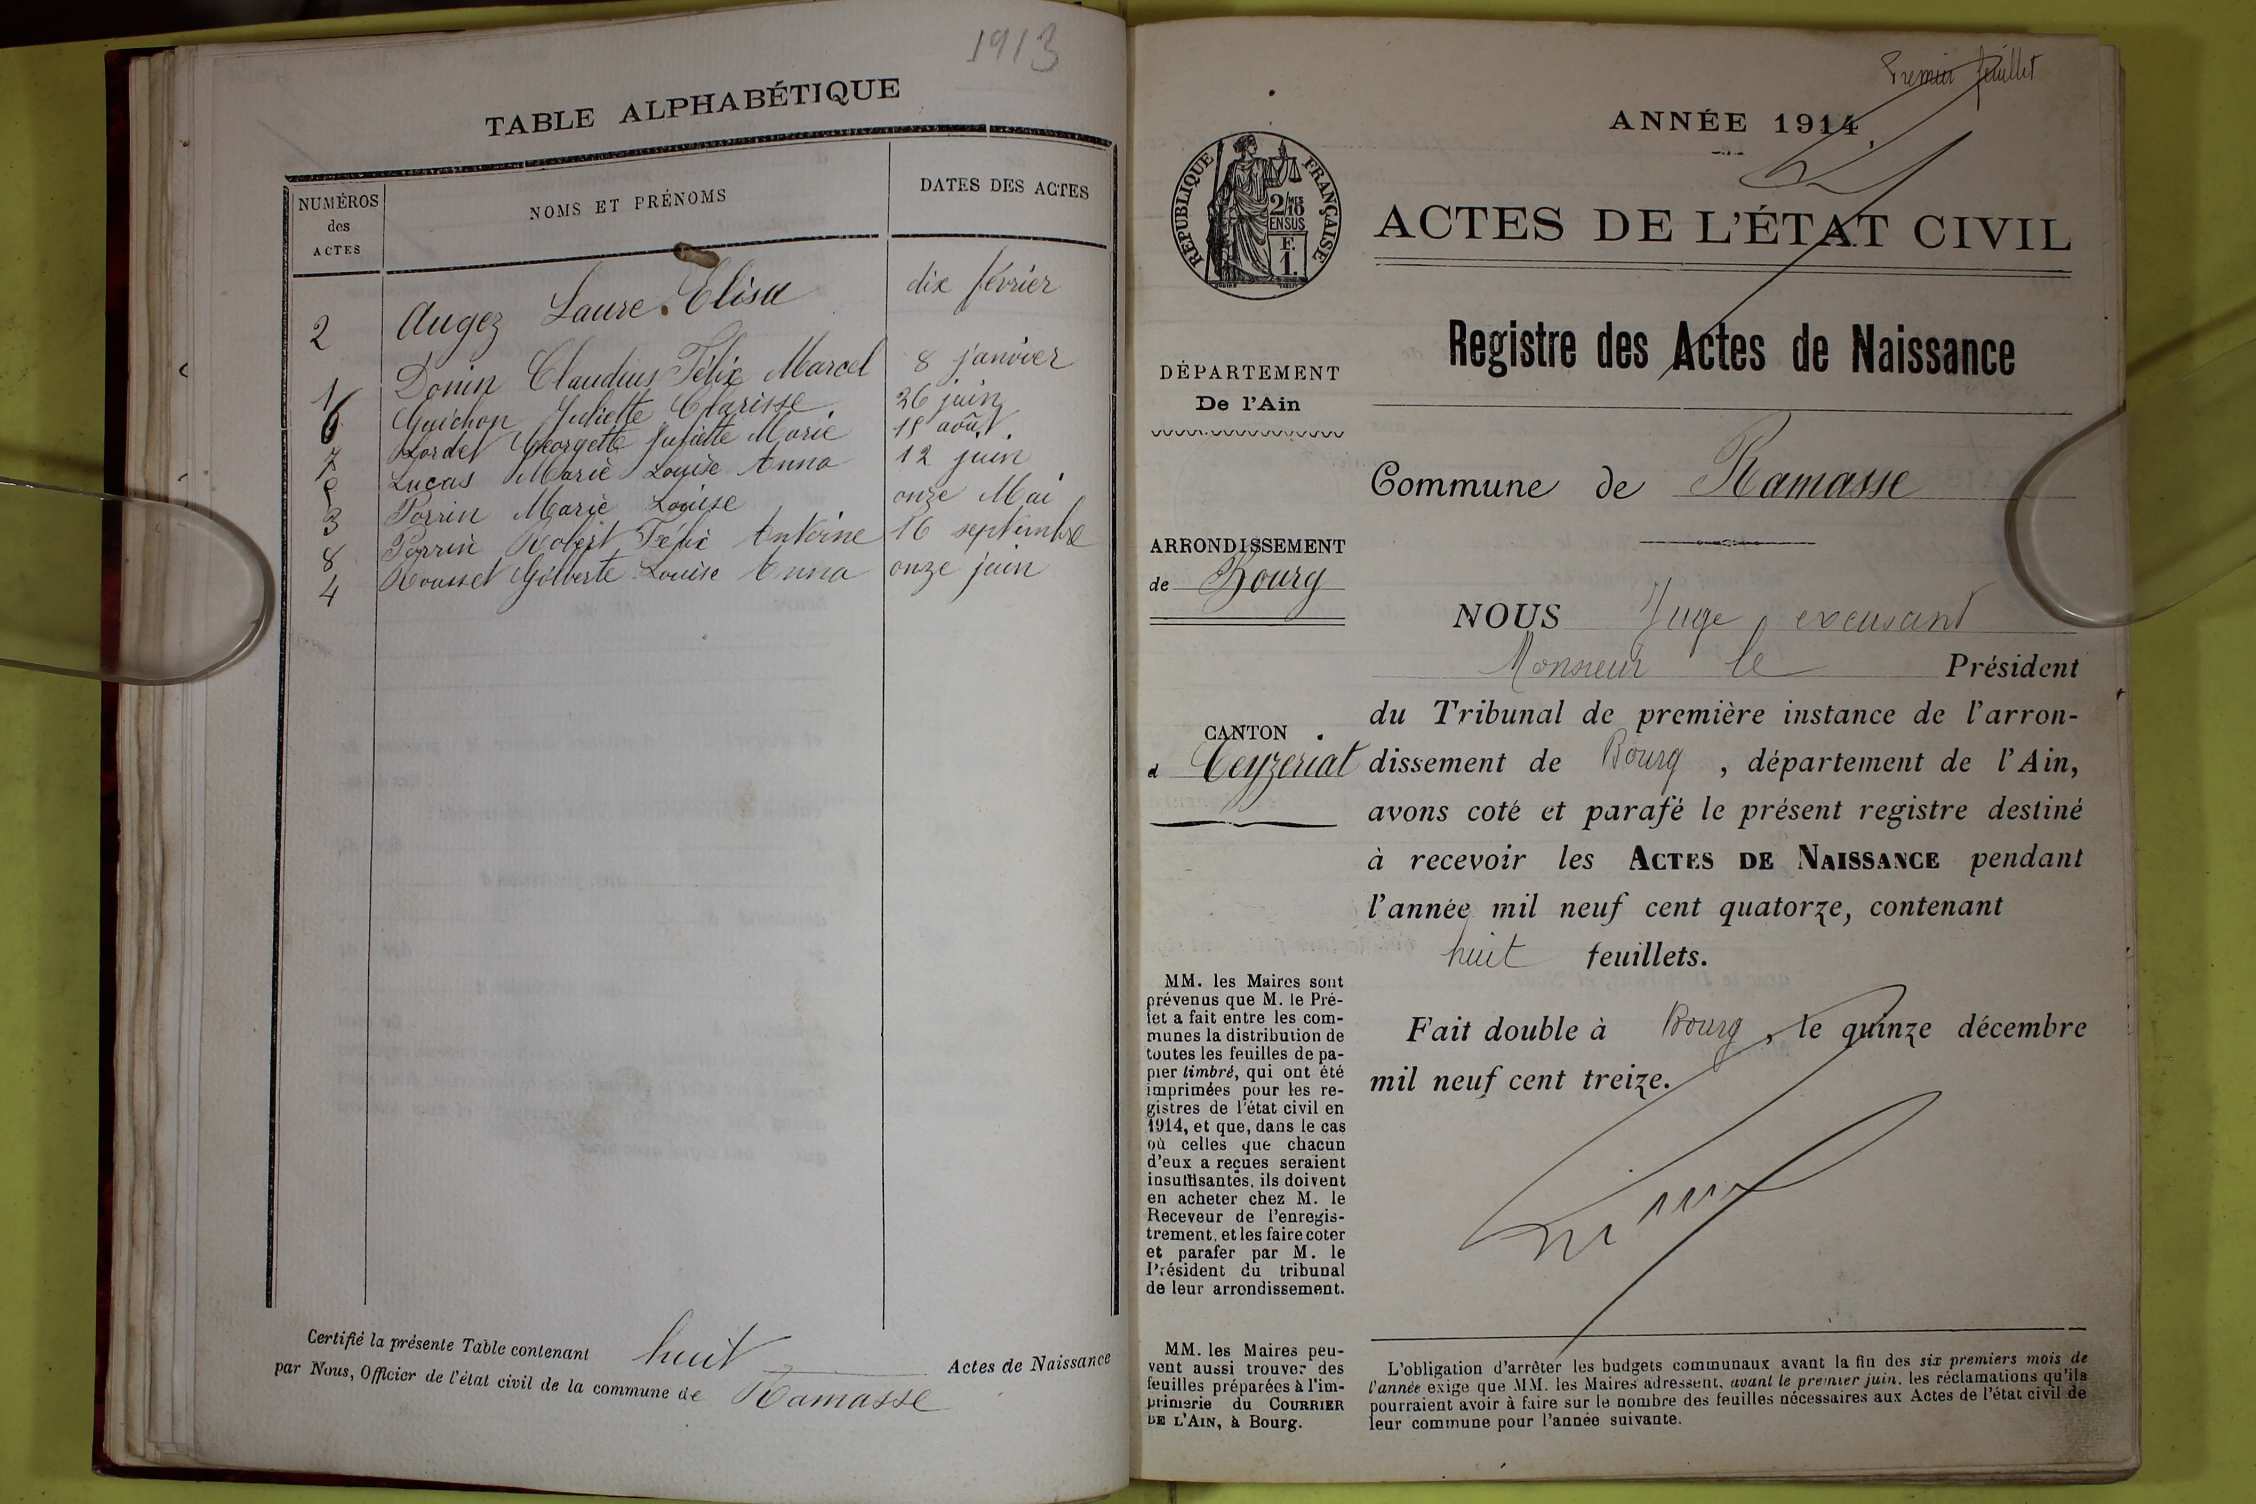 1913
TABLE ALPHABÉTIQUE
NUMÉROS
des
ACTES
NOMS ET PRÉNOMS
DATES DES ACTES
2 Augez Laure Elisa dix février
1 Donin Claudius Félix Marcel 8 janvier
6 Guichon Juliette Clarisse 26 juin
7 Lordet Georgette Juliette Marie août
Lucas Marie Louise Anna 12 juin
3 Perrin Marie Louise onze Mai
8 Perrin Robert Félix Antoine 16 septembre
4 Rousset Gilberte Louise Anna onze juin
Certifié la présente Table contenant huit Actes de Naissance
par Nous, Officier de l'état civil de la commune de Ramasse
Premier feuillet
ANNÉE 1914
RÉPUBLIQUE FRANÇAISE
2/10
EN SUS
F.
1.
ACTES DE L'ÉTAT CIVIL
Registre des Actes de Naissance
DÉPARTEMENT
De l'Ain
Commune de Ramasse
ARRONDISSEMENT
de Bourg
CANTON
d Ceyzériat
NOUS Juge excusant
Monsieur le Président
du Tribunal de première instance de l'arron-
dissement de Bourg, département de l'Ain,
avons coté et parafé le présent registre destiné
à recevoir les ACTES DE NAISSANCE pendant
l'année mil neuf cent quatorze, contenant
huit feuillets.
Fait double à Bourg, le quinze décembre
mil neuf cent treize.
MM. les Maires sont
prévenus que M. le Pré-
fet a fait entre les com-
munes la distribution de
toutes les feuilles de pa-
pier timbré, qui ont été
imprimées pour les re-
gistres de l'état civil en
1914, et que, dans le cas
où celles que chacun
d'eux a reçues seraient
insuffisantes, ils doivent
en acheter chez M. le
Receveur de l'enregis-
trement, et les faire coter
et parafer par M. le
Président du tribunal
de leur arrondissement.
MM. les Maires peu-
vent aussi trouver des
feuilles préparées à l'im-
primerie du COURRIER
DE L'AIN, à Bourg.
L'obligation d'arrêter les budgets communaux avant la fin des six premiers mois de
l'année exige que MM. les Maires adressent, avant le premier juin, les réclamations qu'ils
pourraient avoir à faire sur le nombre des feuilles nécessaires aux Actes de l'état civil de
leur commune pour l'année suivante.